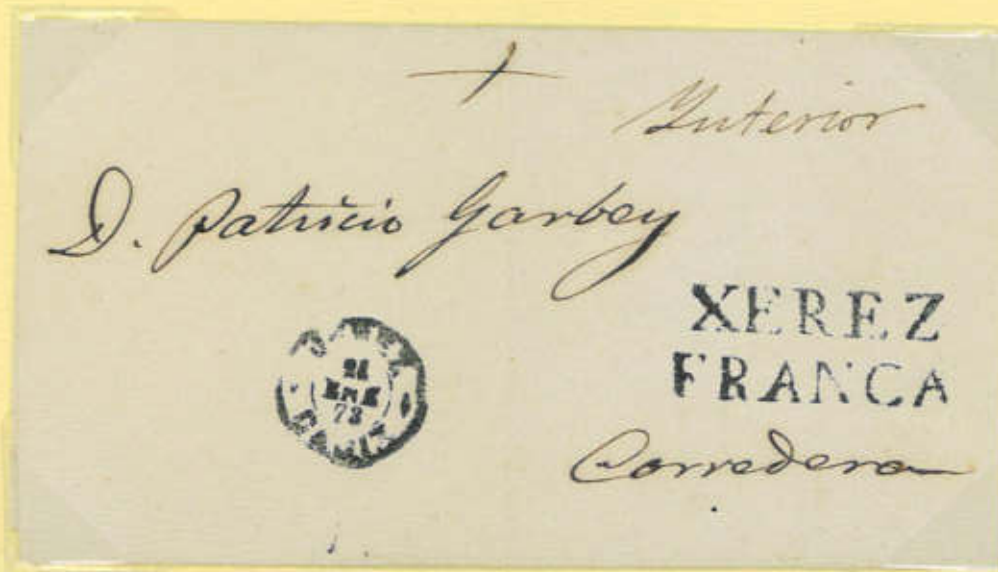 Interior
D. Patricio Garbey
XEREZ
FRANCA
JEREZ
21
ENE
73
CADIZ
Corredera